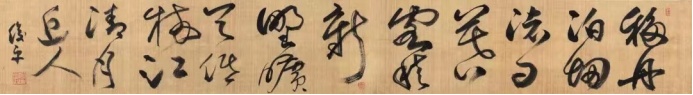 移舟
泊烟
渚日
暮
客愁
新
野曠
天低
樹江
清月
近人